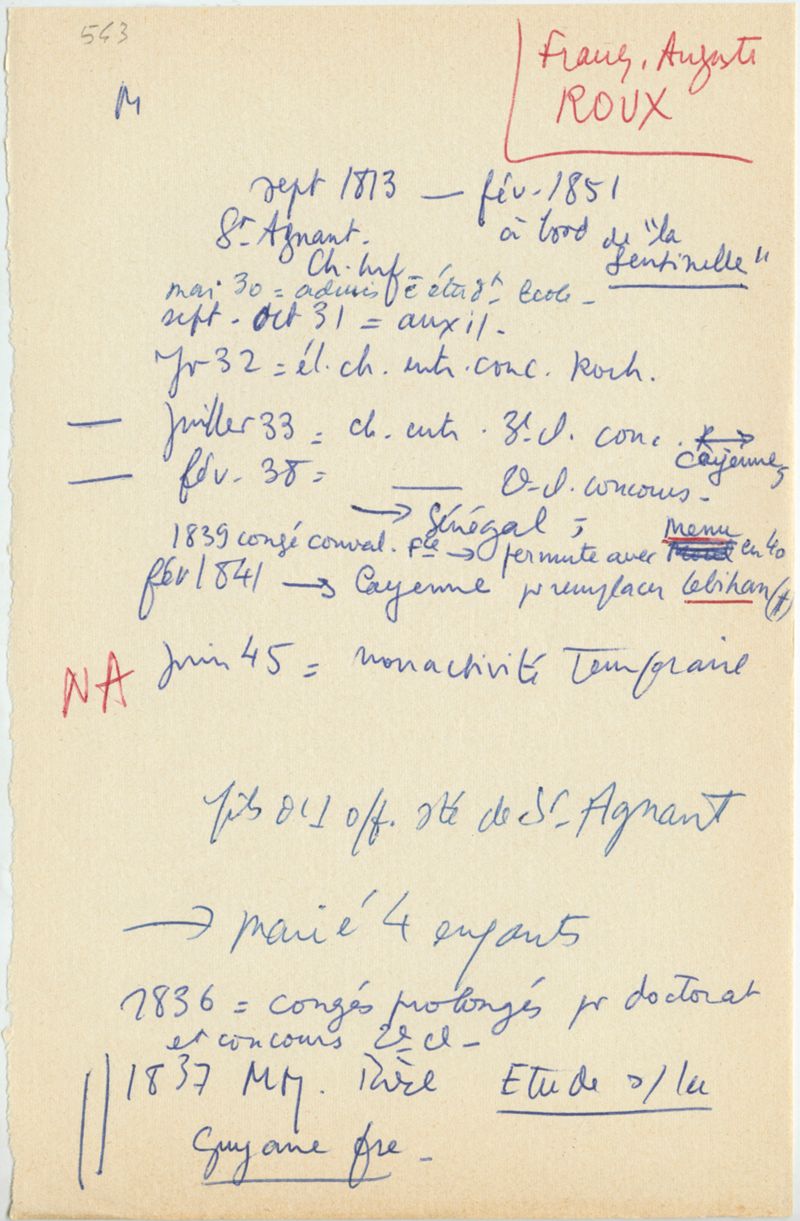 543
M
Franç. Auguste
ROUX
sept 1813 — fév. 1851
St Agnant. à bord de "la
Sentinelle"
Ch. Mf
mai 30 = admis c étudt. Ecole -
sept - oct 31 = auxil.
Jr 32 = él. ch. entr. conc. Roch.
— Juillet 33 = ch. entr. 3e cl. conc. →
Cayenne;
— fév. 38 = —— 2e cl. concours -
→ Sénégal ;
1839 congé conval. Fce → permute avec Menu en 40
fév 1841 → Cayenne pr remplacer Lebihan (†)
NA Juin 45 = nonactivité Temporaire
fils d'1 off. sté de St Agnant
→ marié 4 enfants
1836 = congés prolongés pr doctorat
et concours 2e cl -
1837 Mtp. Thèse Etude s/ la
Guyane fre -